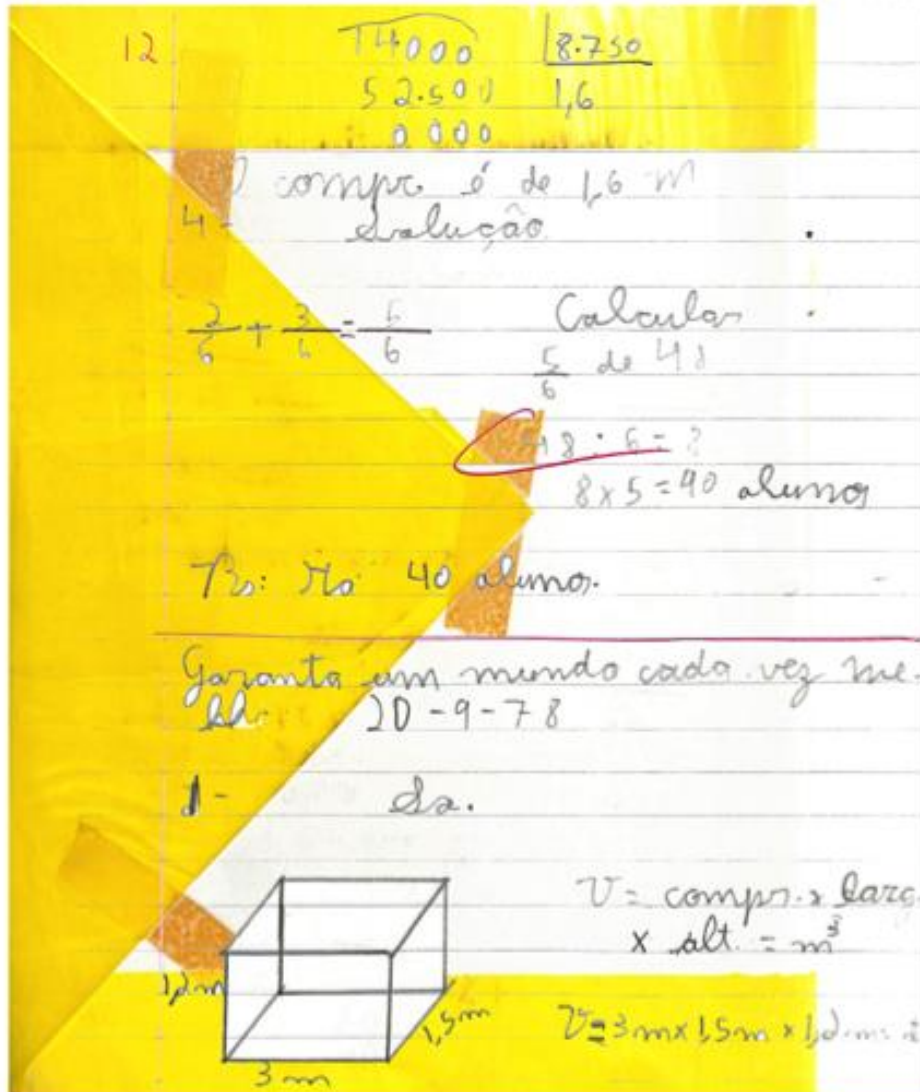 12
14000 8.750
52.500 1,6
0000
compr. é de 1,6 m
4- Solução
2/6 + 3/6 = 5/6 Calcular
5/6 de 48
48 : 6 = 8
8 x 5 = 40 alunos
Rs: 40 alunos.
Garanta um mundo cada vez me-
20-9-78
1- So.
V = compr. x larg.
x alt. = m³
1,2m
1,5m V = 3m x 1,5m x 1,2m =
3m